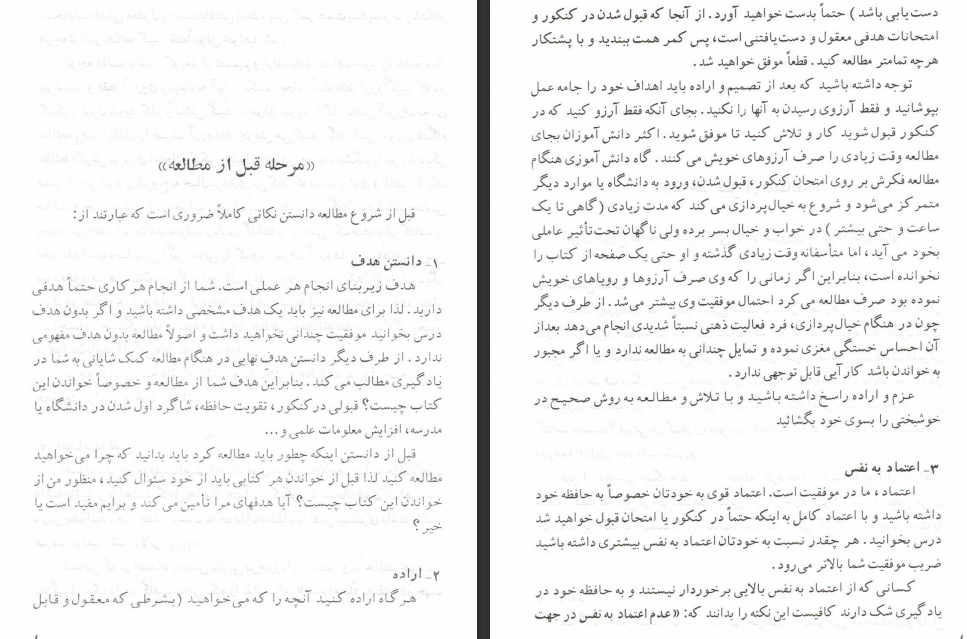 «مرحله قبل از مطالعه»
قبل از شروع مطالعه دانستن نکاتی کاملاً ضروری است که عبارتند از:
۱ـ دانستن هدف
هدف زیربنای انجام هر عملی است. شما از انجام هر کاری حتماً هدفی
دارید. لذا برای مطالعه نیز باید یک هدف مشخصی داشته باشید و اگر بدون هدف
درس بخوانید موفقیت چندانی نخواهید داشت و اصولاً مطالعه بدون هدف مفهومی
ندارد. از طرف دیگر دانستن هدف نهایی در هنگام مطالعه کمک شایانی به شما در
یادگیری مطالب می کند. بنابراین هدف شما از مطالعه و خصوصاً خواندن این
کتاب چیست؟ قبولی در کنکور، تقویت حافظه، شاگرد اول شدن در دانشگاه یا
مدرسه، افزایش معلومات علمی و...
قبل از دانستن اینکه چطور باید مطالعه کرد باید بدانید که چرا می‌خواهید
مطالعه کنید لذا قبل از خواندن هر کتابی باید از خود سئوال کنید، منظور من از
خواندن این کتاب چیست؟ آیا هدفهای مرا تأمین می کند و برایم مفید است یا
خیر؟
۲ـ اراده
هرگاه اراده کنید آنچه را که می‌خواهید (بشرطی که معقول و قابل
دست‌یابی باشد) حتماً بدست خواهید آورد. از آنجا که قبول شدن در کنکور و
امتحانات هدفی معقول و دست‌یافتنی است، پس کمر همت ببندید و با پشتکار
هرچه تمامتر مطالعه کنید. قطعاً موفق خواهید شد.
توجه داشته باشید که بعد از تصمیم و اراده باید اهداف خود را جامه عمل
بپوشانید و فقط آرزوی رسیدن به آنها را نکنید. بجای آنکه فقط آرزو کنید که در
کنکور قبول شوید کار و تلاش کنید تا موفق شوید. اکثر دانش آموزان بجای
مطالعه وقت زیادی را صرف آرزوهای خویش می کنند. گاه دانش آموزی هنگام
مطالعه فکرش بر روی امتحان کنکور، قبول شدن، ورود به دانشگاه یا موارد دیگر
متمرکز می‌شود و شروع به خیال‌پردازی می کند که مدت زیادی (گاهی تا یک
ساعت و حتی بیشتر) در خواب و خیال بسر برده ولی ناگهان تحت‌تأثیر عاملی
بخود می آید، اما متأسفانه وقت زیادی گذشته و او حتی یک صفحه از کتاب را
نخوانده است، بنابراین اگر زمانی را که وی صرف آرزوها و رویاهای خویش
نموده بود صرف مطالعه می کرد احتمال موفقیت وی بیشتر می‌شد. از طرف دیگر
چون در هنگام خیال‌پردازی، فرد فعالیت ذهنی نسبتاً شدیدی انجام می‌دهد بعداز
آن احساس خستگی مغزی نموده و تمایل چندانی به مطالعه ندارد و یا اگر مجبور
به خواندن باشد کارآیی قابل توجهی ندارد.
عزم و اراده راسخ داشته باشید و با تلاش و مطالعه به روش صحیح در
خوشبختی را بسوی خود بگشائید
۳ـ اعتماد به نفس
اعتماد، ما در موفقیت است. اعتماد قوی به خودتان خصوصاً به حافظه خود
داشته باشید و با اعتماد کامل به اینکه حتماً در کنکور یا امتحان قبول خواهید شد
درس بخوانید. هر چقدر نسبت به خودتان اعتماد به نفس بیشتری داشته باشید
ضریب موفقیت شما بالاتر می‌رود.
کسانی که از اعتماد به نفس بالایی برخوردار نیستند و به حافظه خود در
یادگیری شک دارند کافیست این نکته را بدانند که: «عدم اعتماد به نفس در جهت